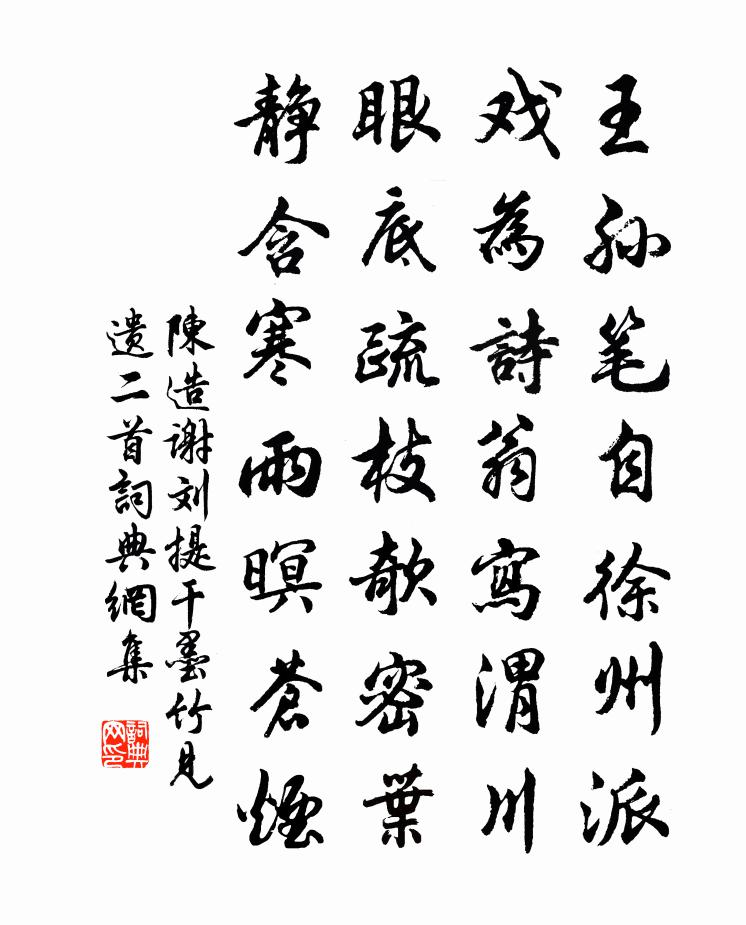 王孙笔自徐州派
戏為詩翁寫渭川
眼底疏枝欹密葉
静含寒雨暝蒼煙
陳造谢刘提干墨竹见
遗二首詞典網集
詞典网印